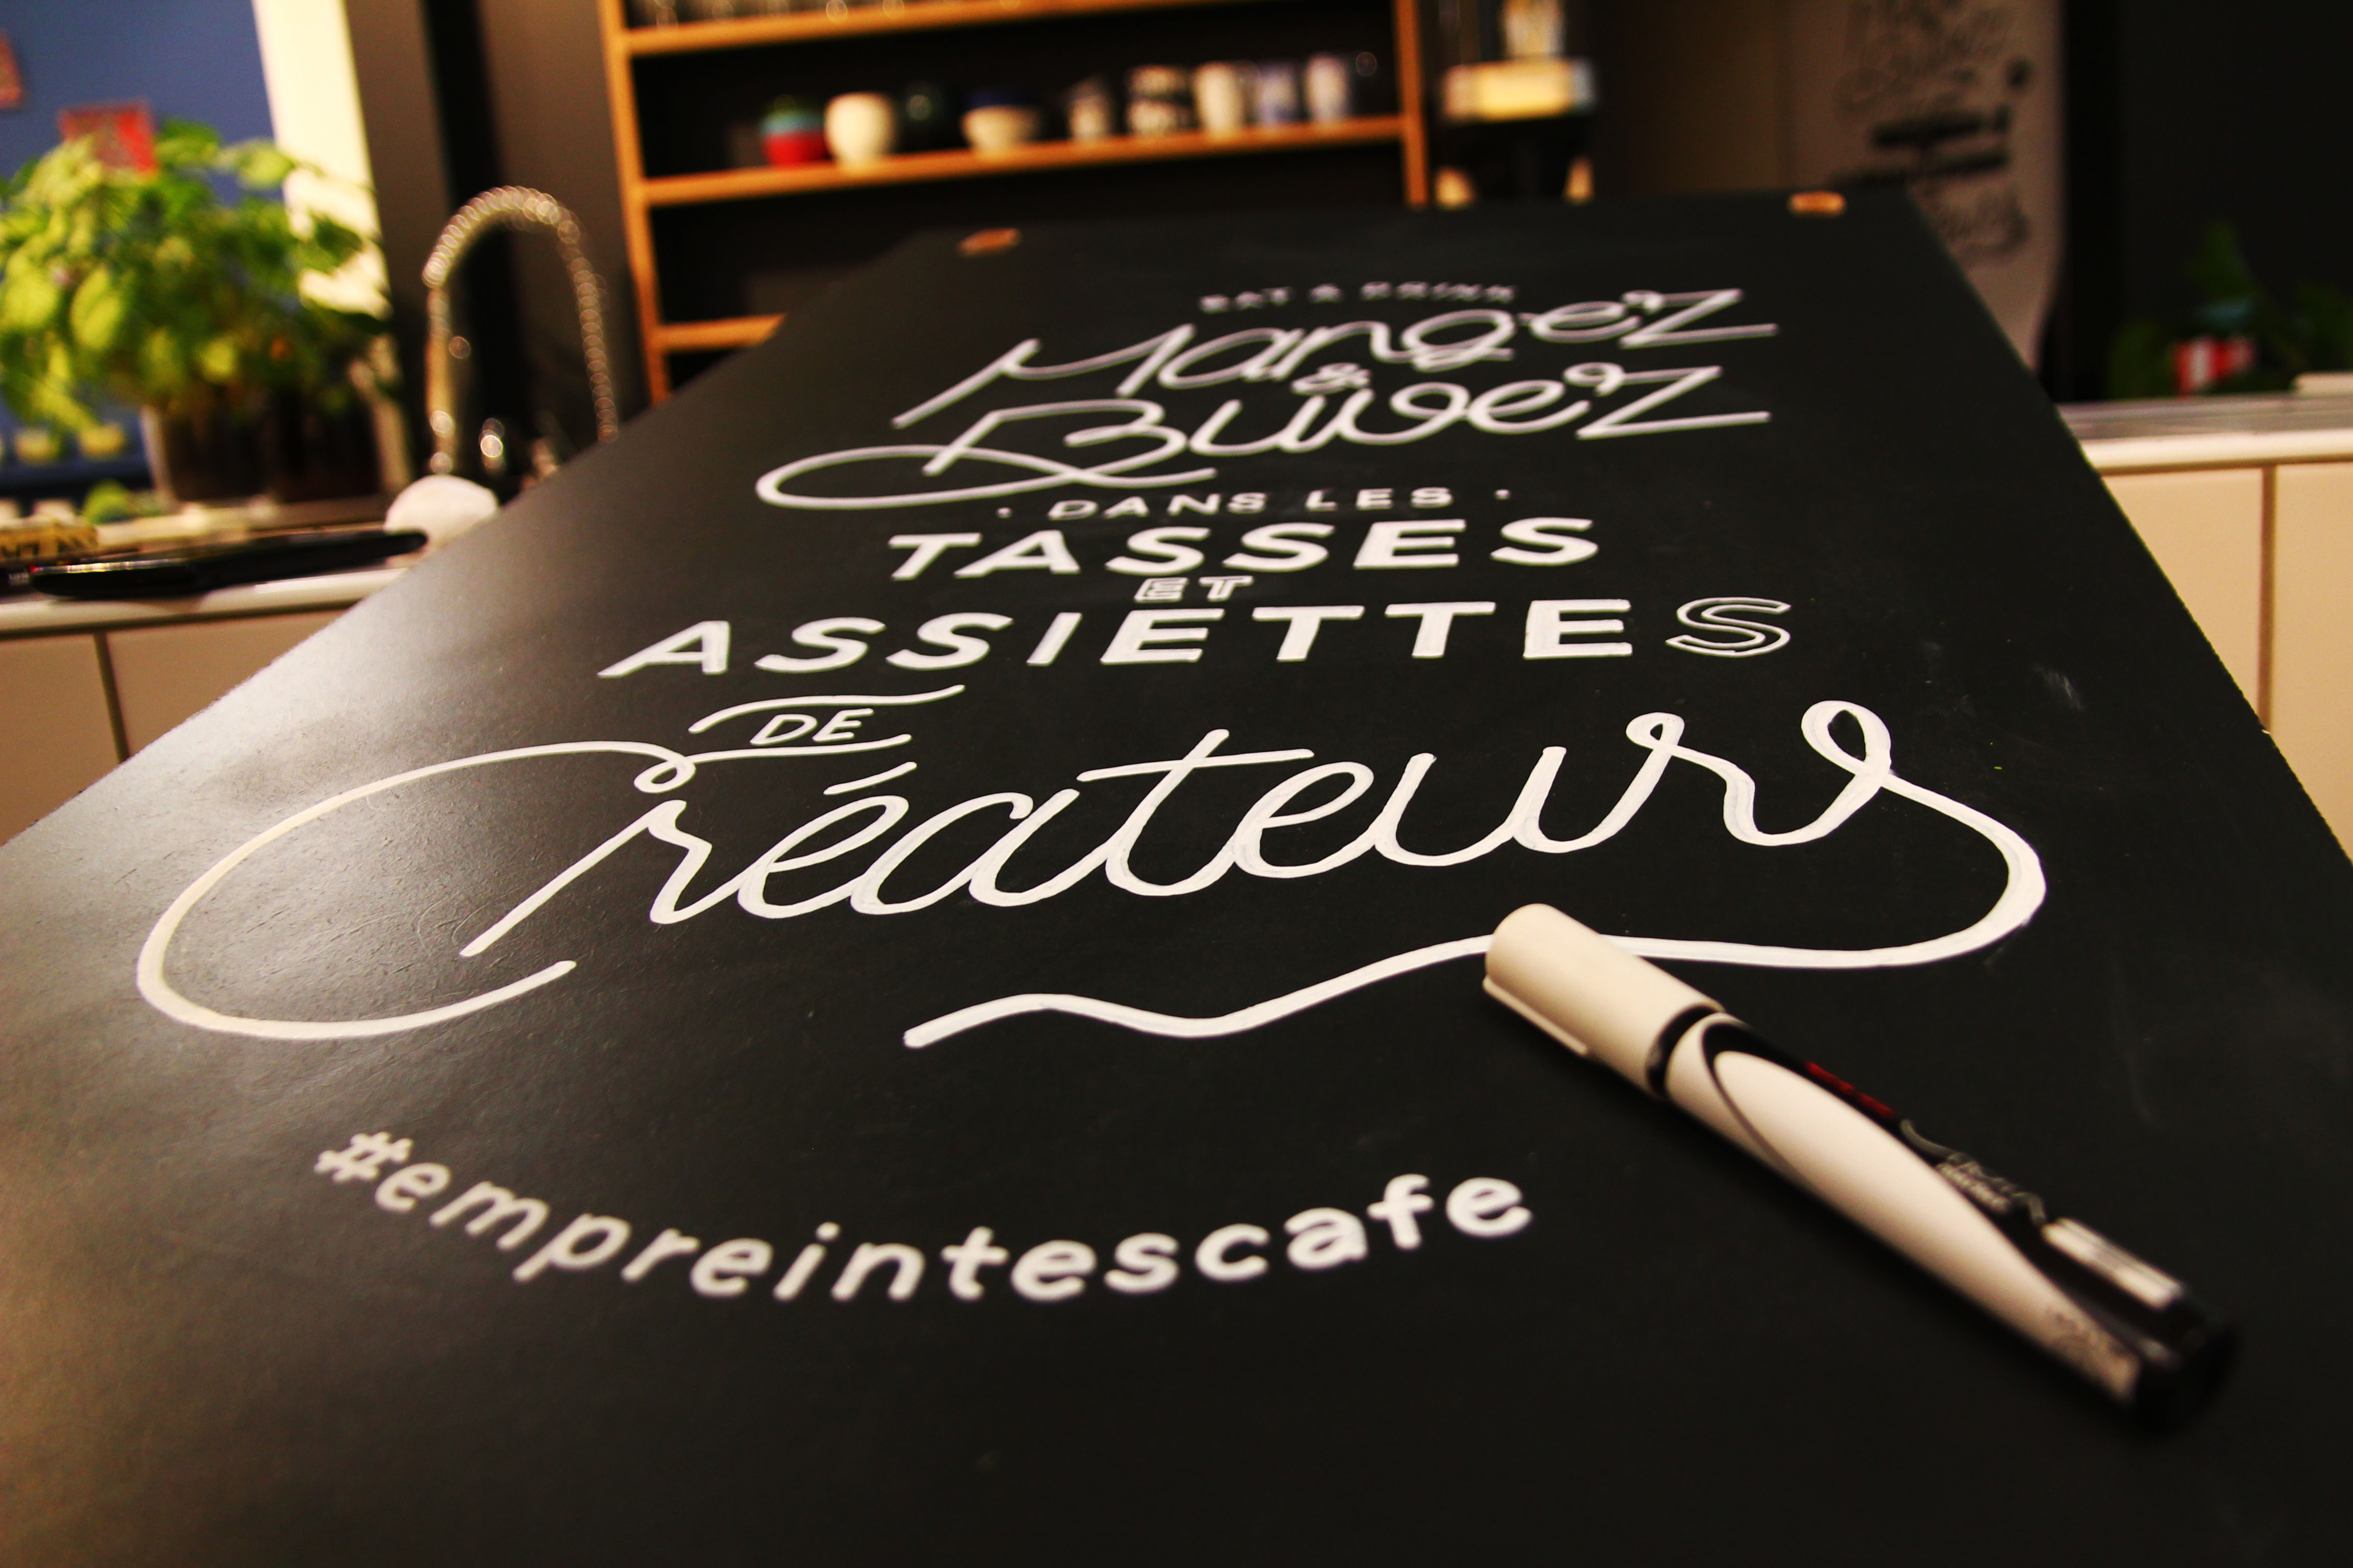 EAT & DRINK
Mangez
&
Buvez
· DANS LES ·
TASSES
ET
ASSIETTES
DE
Créateurs
#empreintescafe